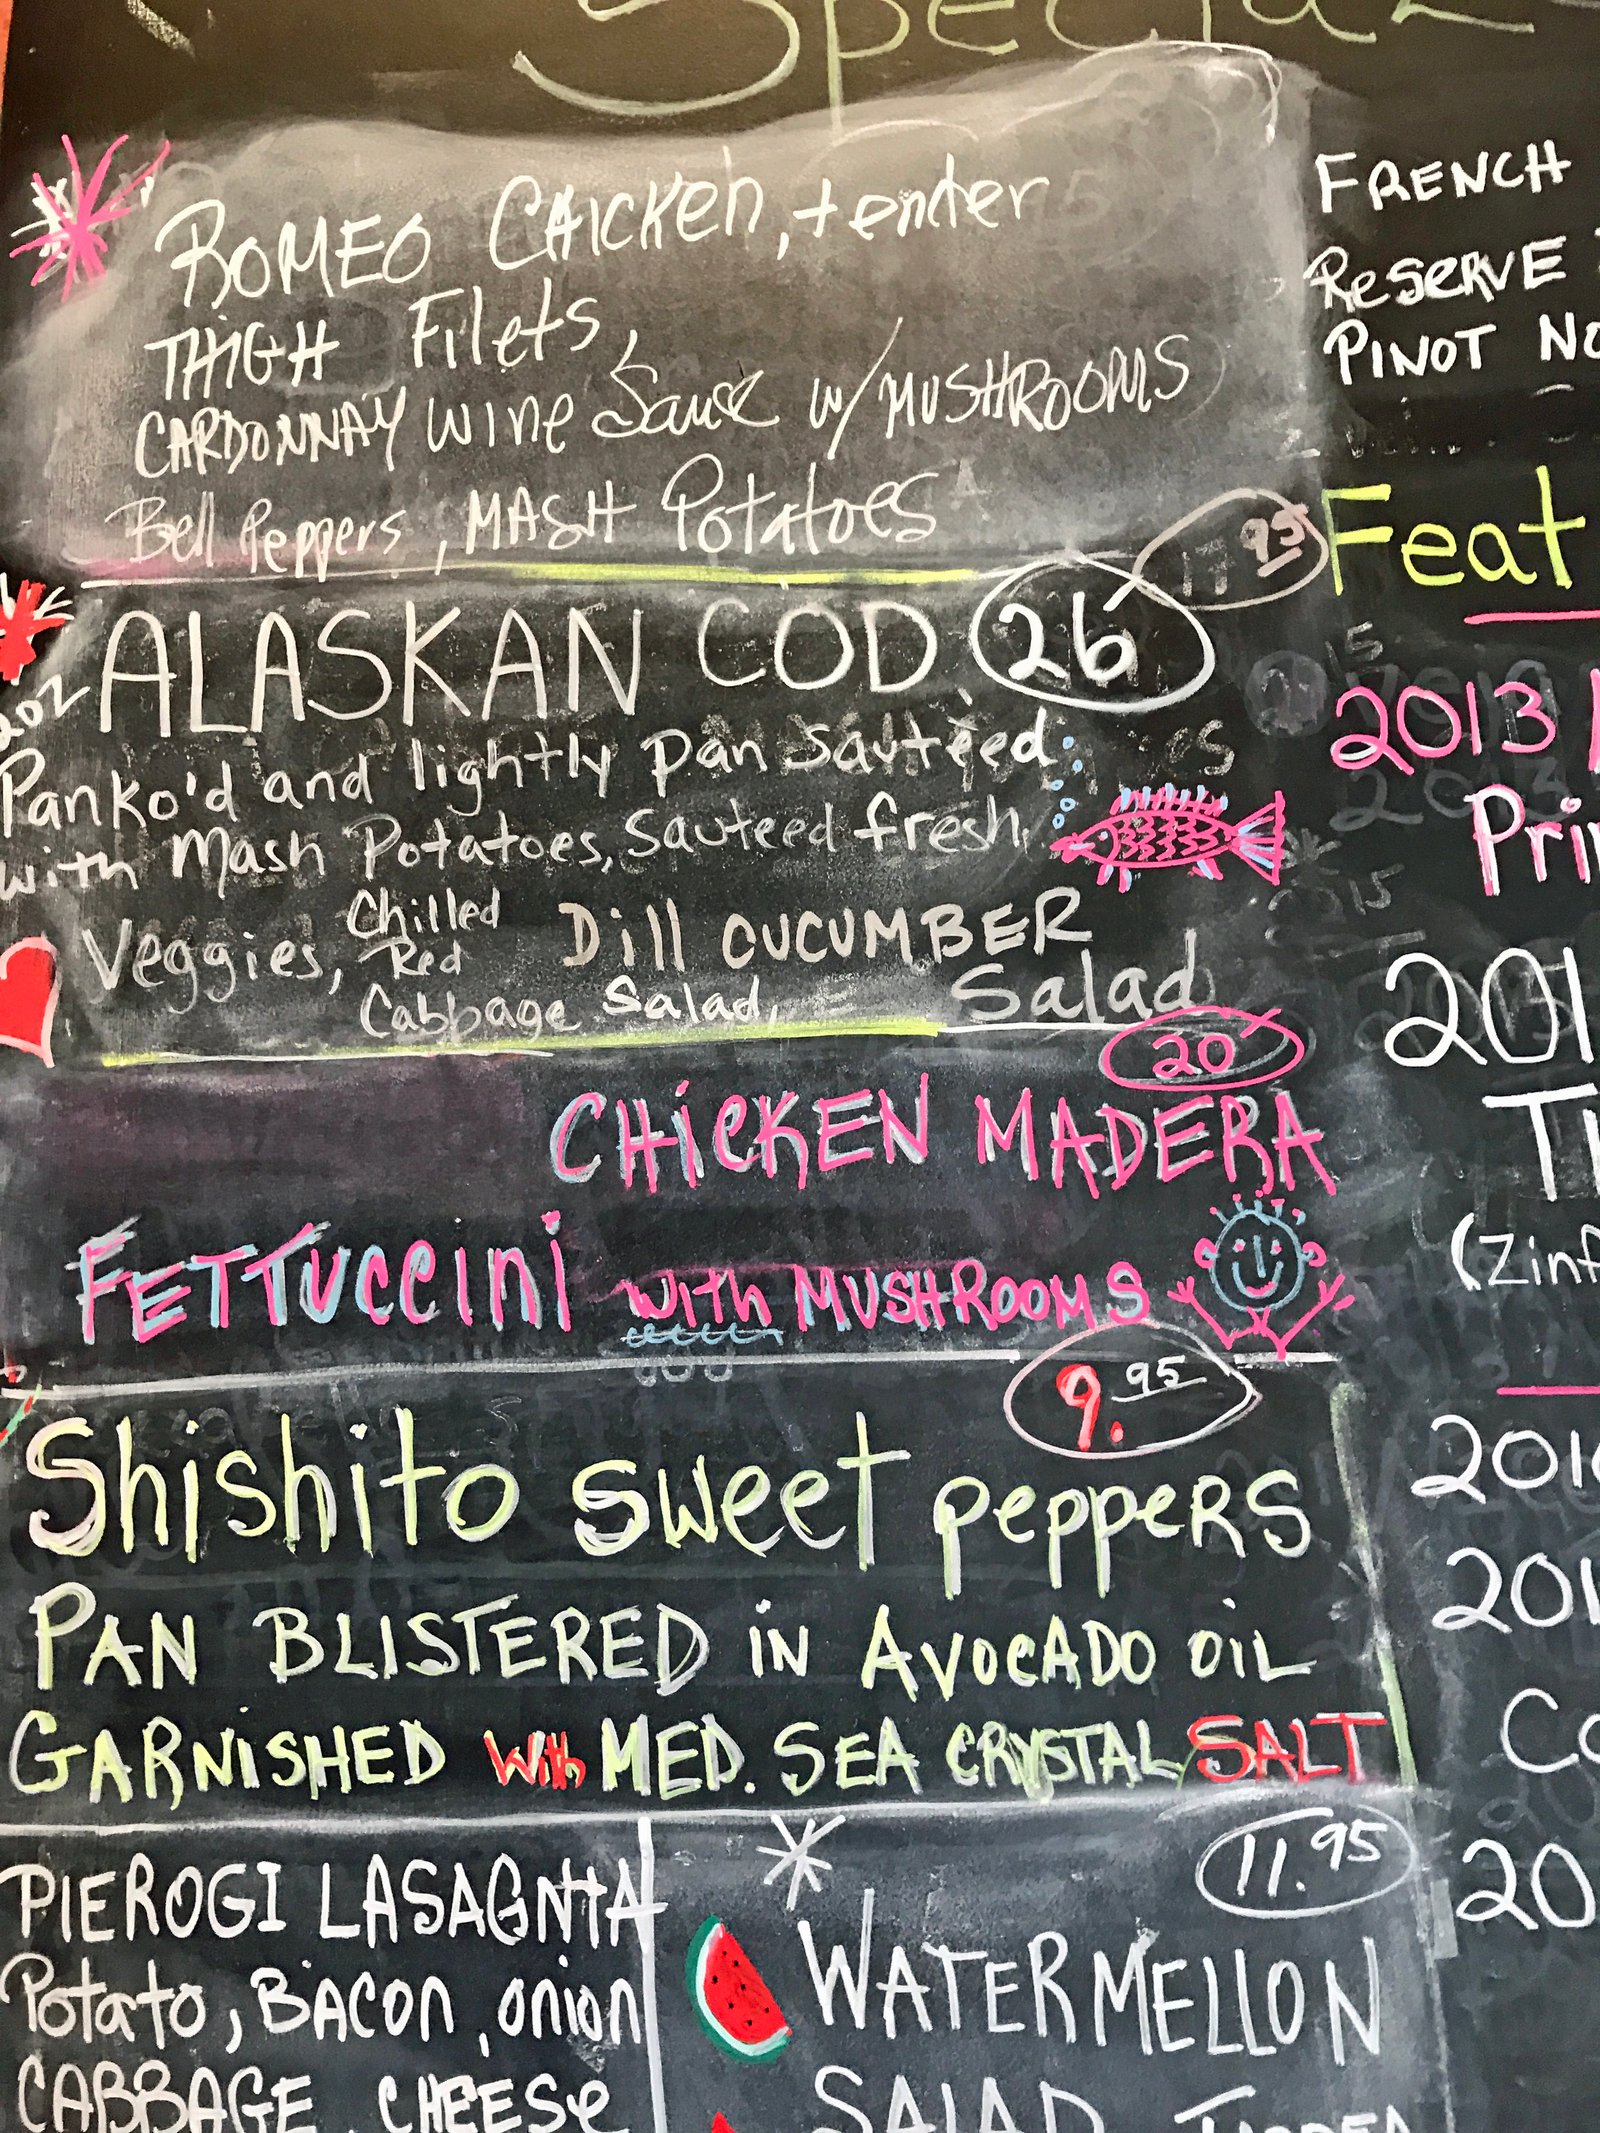 Special
ROMEO CHICKEN, tender
THIGH Filets,
CARDONNAY WINE Sauce w/ MUSHROOMS
Bell Peppers, MASH Potatoes
17 95
ALASKAN COD 26
Panko'd and lightly pan sauteed
with Mash Potatoes, Sauteed fresh
Veggies, Chilled Red Cabbage Salad, Dill CUCUMBER Salad
20
CHICKEN MADERA
FETTUCCINI with MUSHROOMS
9. 95
Shishito sweet peppers
PAN BLISTERED iN AVOCADO OiL
GARNISHED With MED. SEA CRYSTAL SALT
PIEROGI LASAGNHA
Potato, BACON, onion
CABBAGE, CHEESE
11.95
WATERMELLON
SALAD
FRENCH
RESERVE
PINOT NO
Feat
2013
Prin
201
(Zinf
201
Co
20